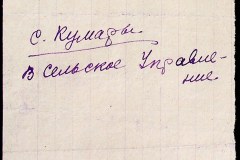 с. Кумары.
В Сельское Управле-
ние.